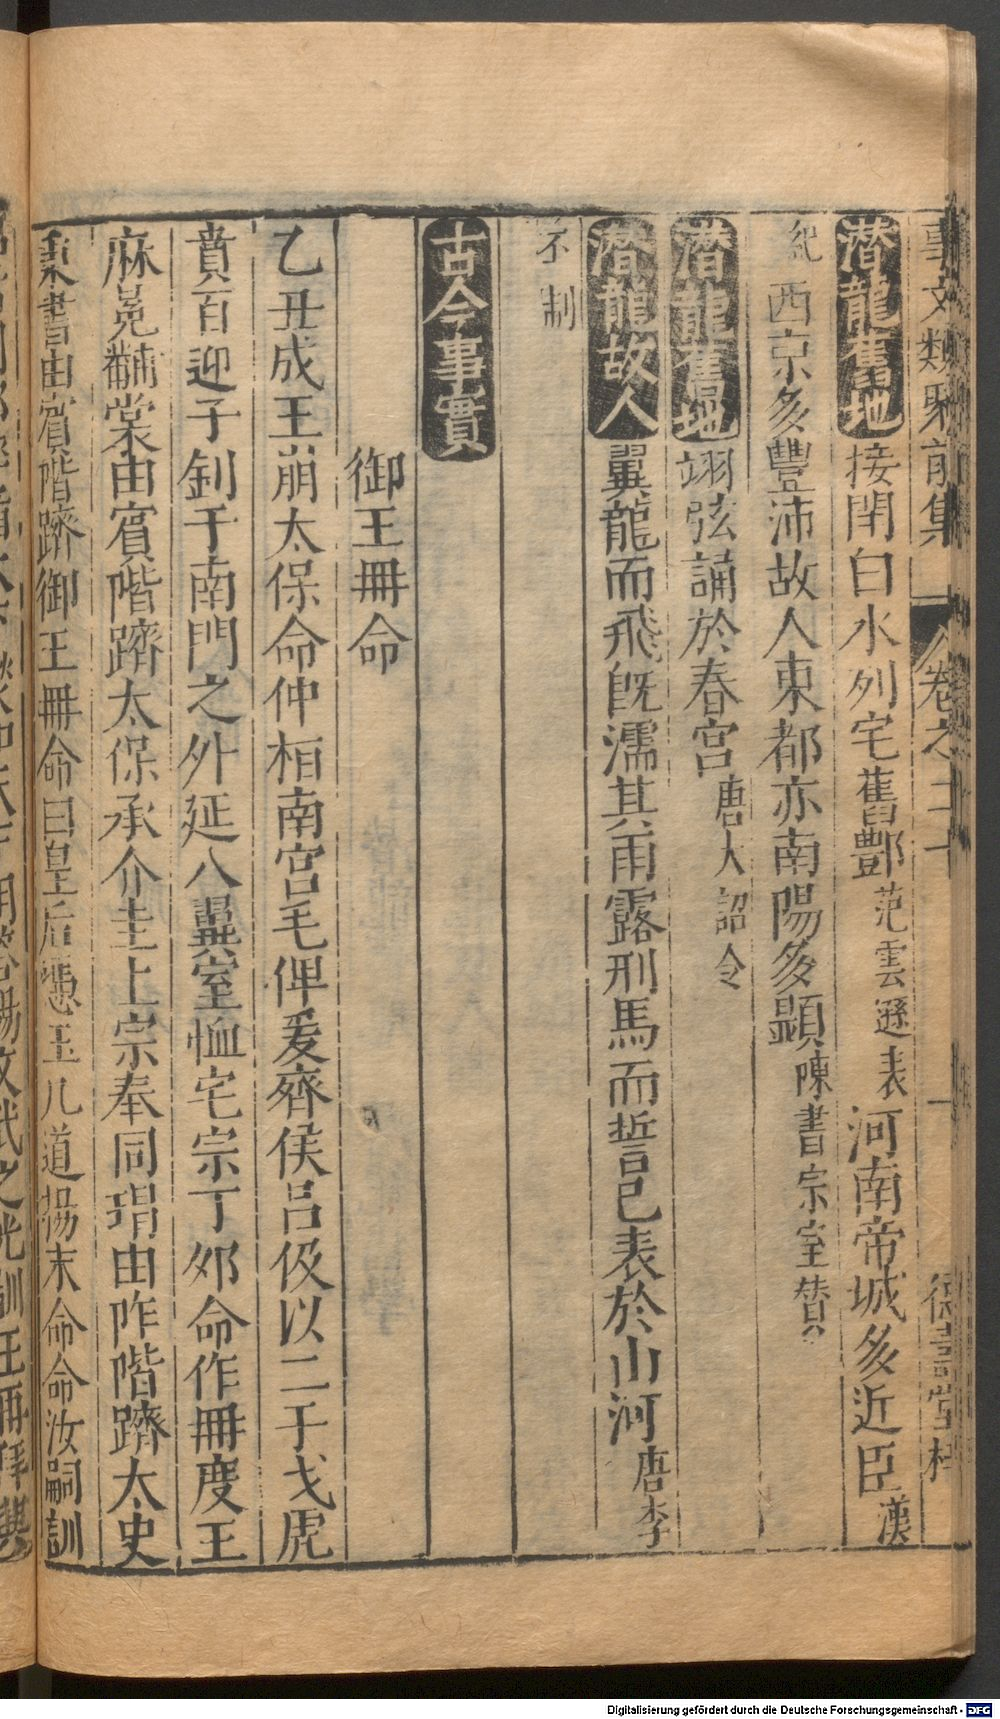 事文類聚前集 卷之二十 一 德壽堂梓
潛龍舊地 接閈白水列宅舊酆范雲遜表河南帝城多近臣漢
紀西京多豐沛故人東都亦南陽多顯陳書宗室贊
潛龍舊地 翊弦誦於春宮唐大詔令
潛龍故人 翼龍而飛旣濡其雨露刑馬而誓已表於山河唐李
不制
古今事實
御王冊命
乙丑成王崩太保命仲桓南宮毛俾爰齊侯呂伋以二干戈虎
賁百迎子釗于南門之外延入翼室恤宅宗丁卯命作冊度王
麻冕黼裳由賓階躋太保承介圭上宗奉同瑁由阼階躋太史
秉書由賓階躋御王冊命曰皇后憑玉几道揚末命命汝嗣訓
文武之光訓王再拜興
Digitalisierung gefördert durch die Deutsche Forschungsgemeinschaft - DFG